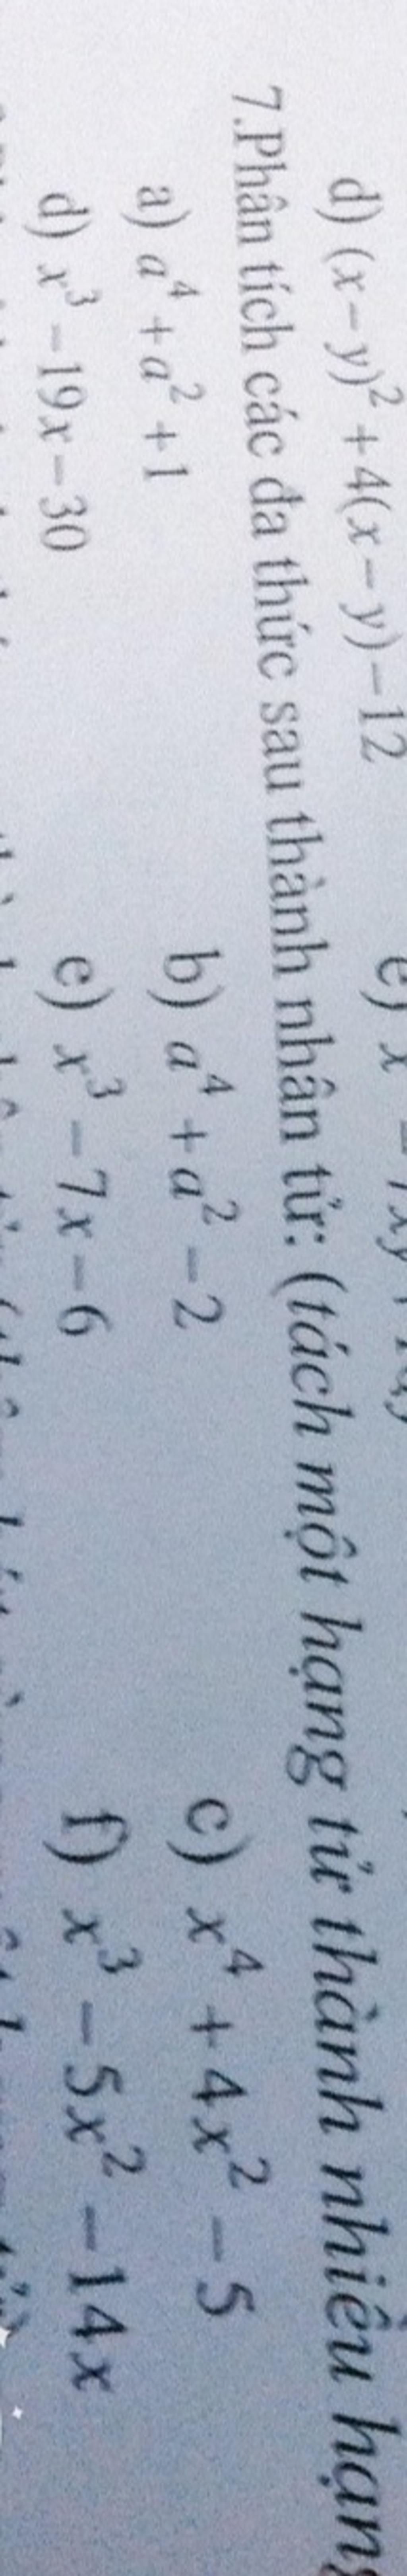 d) (x-y)² + 4(x-y) - 12
7.Phân tích các đa thức sau thành nhân tử: (tách một hạng tử thành nhiều
a) a⁴ + a² + 1 b) a⁴ + a² - 2 c) x⁴ + 4x² - 5
d) x³ - 19x - 30 e) x³ - 7x - 6 f) x³ - 5x² - 14x